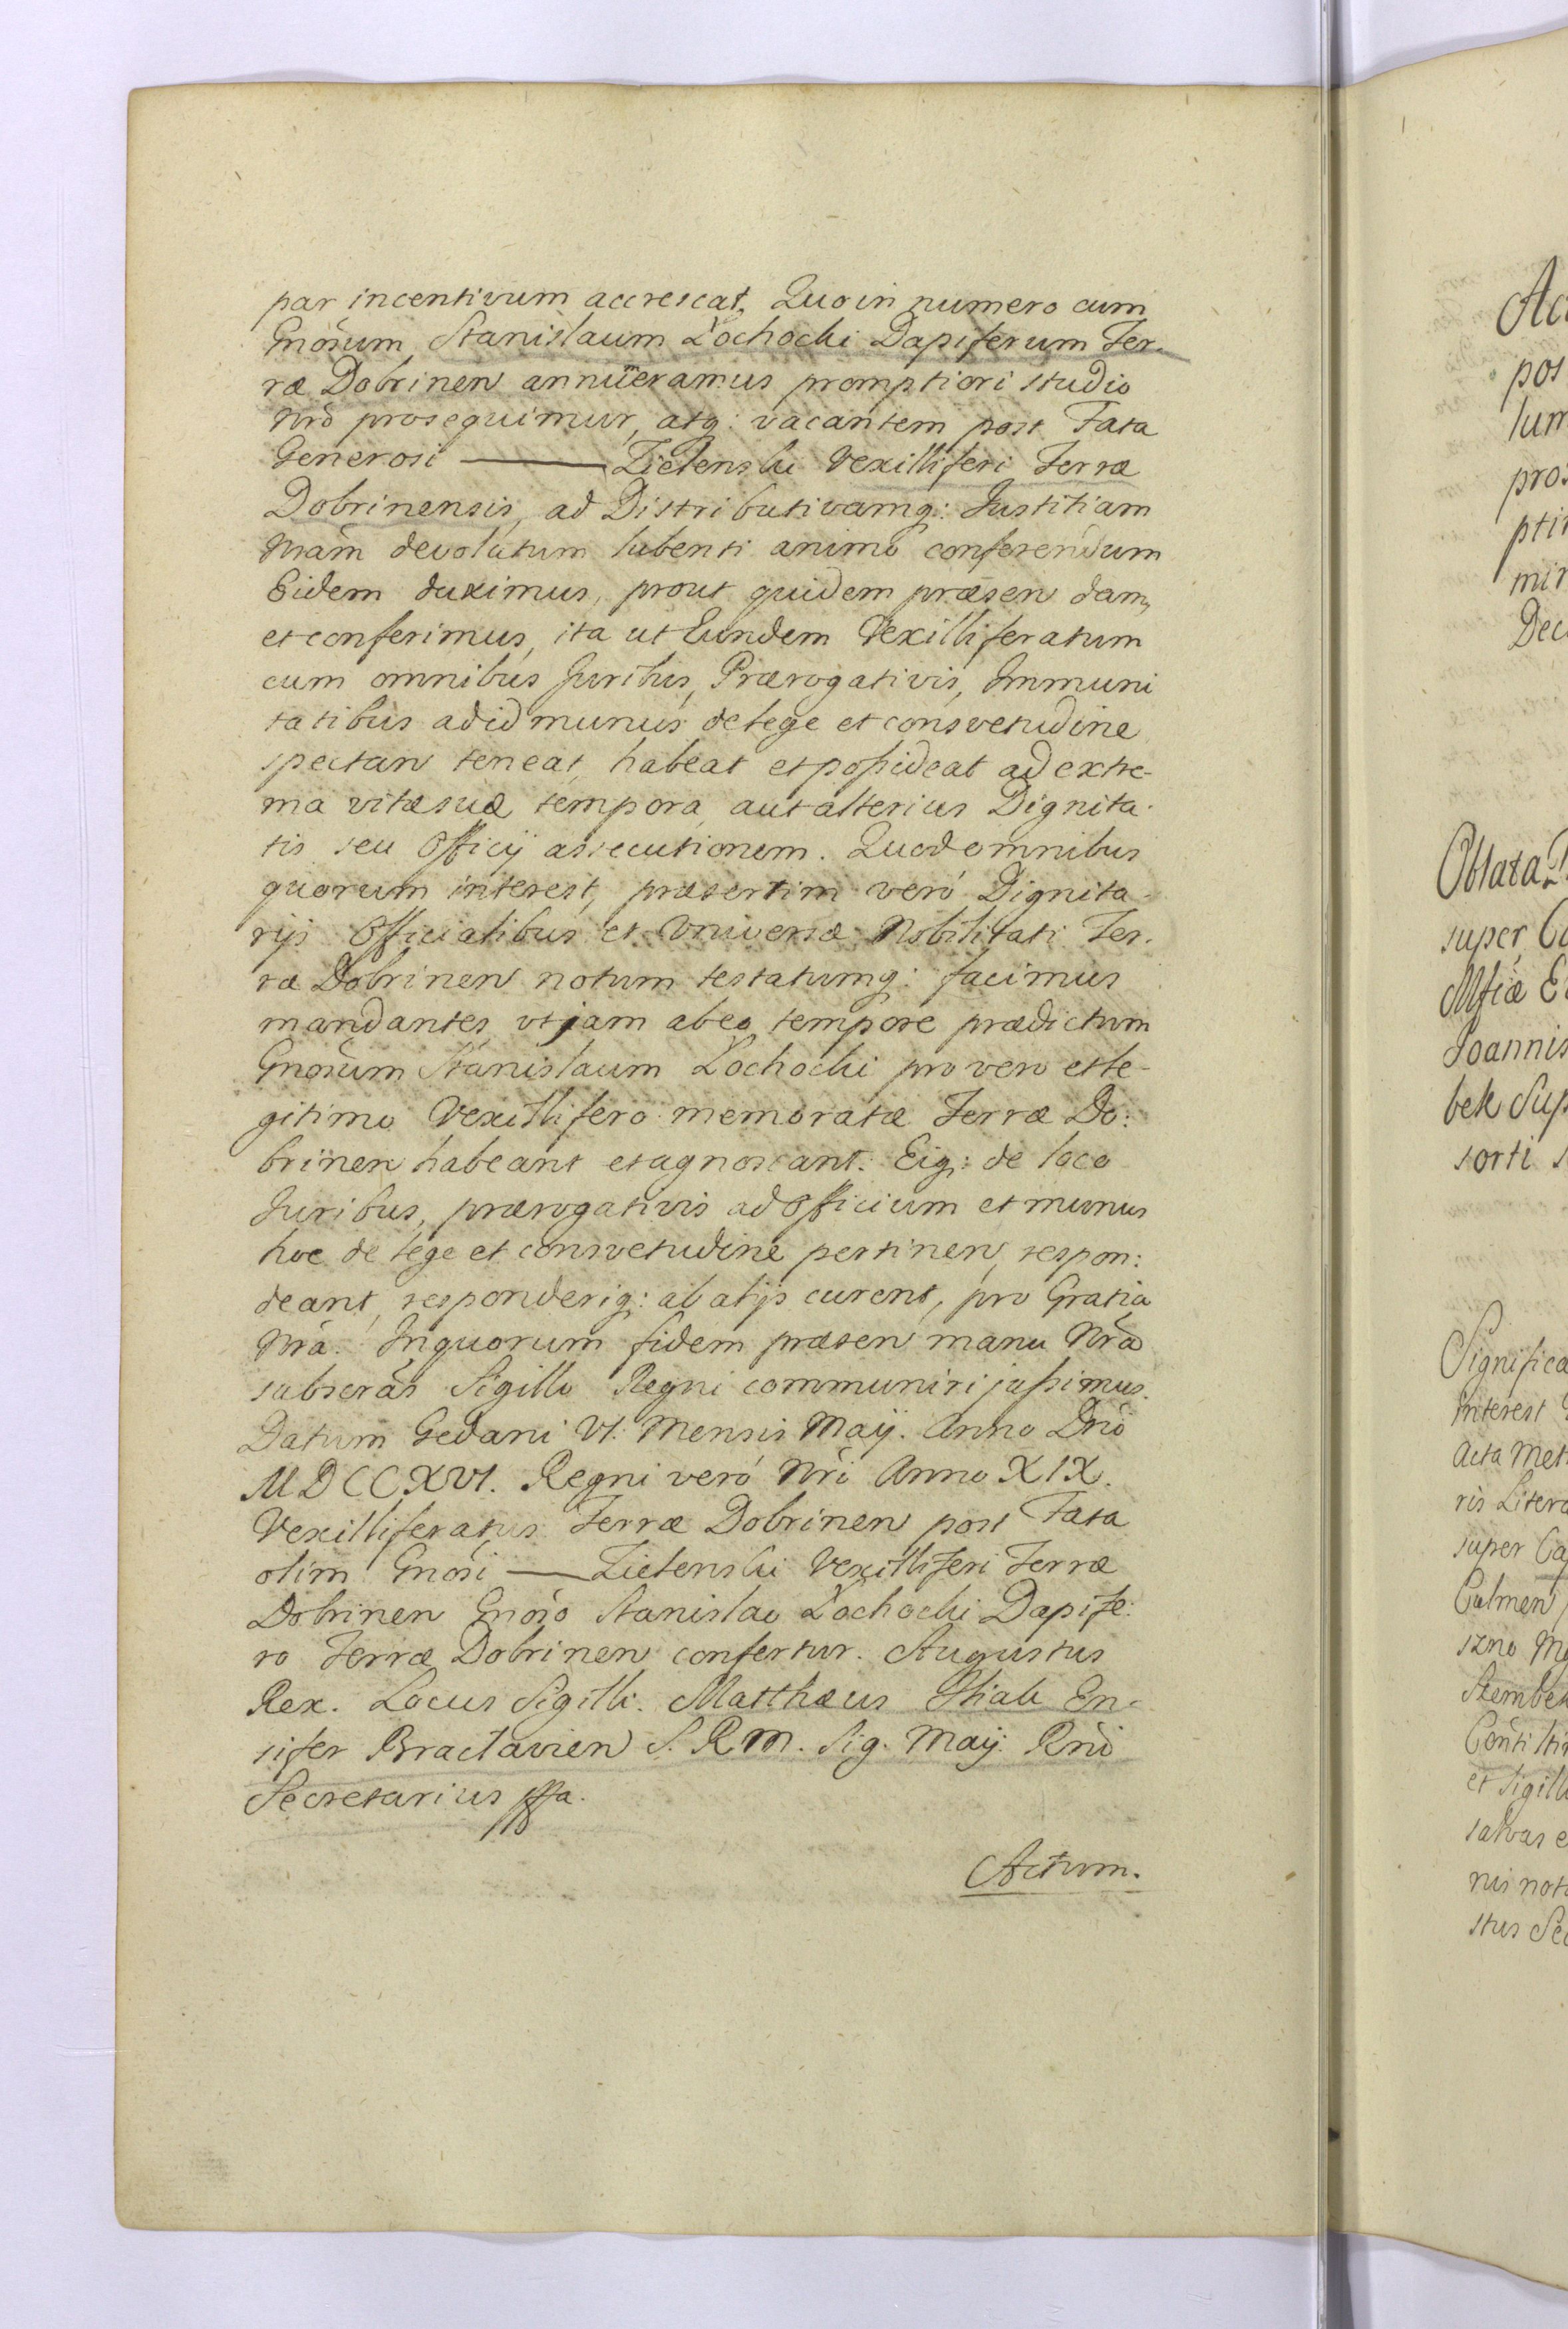 par incentivum accrescat, Quo in numero cum
Gnosum Stanislaum Łochocki Dapiferum Ter-
ræ Dobrinen annuieramus promptiori studio
Nrõ prosequimur, atq: vacantem post Fata
Generosi ——— Zielenski Vexilliferi Terræ
Dobrinensis, ad Distributivamq: Justitiam
Nrãm devolutum lubenti animo conferendum
Eidem duximus, prout quidem præsen dam,
et conferimus, ita ut Eundem Vexilliferatum
cum omnibus Juribus, Prærogativis, Immuni
tatibus ad id munus de lege et consvetudine
spectan teneat, habeat et possideat ad extre-
ma vitæ suæ tempora, aut alterius Dignita-
tis seu Officij assecutionem. Quod omnibus
quorum interest, præsertim veró Dignita-
rijs Officialibus et Universæ Nobilitati Ter-
ræ Dobrinen notum testatumq: facimus
mandantes, ut jam ab eo tempore prædictum
Gnosum Stanislaum Łochocki pro vero et le-
gitimo Vexillifero memoratæ Terræ Do:
brinen habeant et agnoscant. Eiq: de loco
Juribus, prærogativis ad Officium et munus
hoc de lege et consvetudine pertinen, respon:
deant, responderiq: ab alijs curent, pro Gratia
Nrã. In quorum fidem præsen manu Nrã
subscrãs Sigillo Regni communiri jussimus.
Datum Gedani VI. Mensis Maij. Anno Dnĩ
MDCCXVI. Regni veró Nrĩ Anno XIX.
Vexilliferatus Terræ Dobrinen post Fata
olim Gnosi —— Zielenski Vexilliferi Terræ
Dobrinen Gnoso Stanislao Łochocki Dapife:
ro Terræ Dobrinen confertur. Augustus
Rex. Locus Sigilli. Matthæus En-
sifer Bractavien S. R M. Sig. Maij. Rnĩ
Secretarius
Actum.
Act
pos
lum
pros
ptim
min
Dec
Oblata
super Ca
Mtiæ E
Joannis
bek Sup
sorti s
Significa
interest
Acta Met
ris Litera
super Ca
Culmen
szno Ma
Szembek
et Sigill
salvas e
nis not
stus Sec